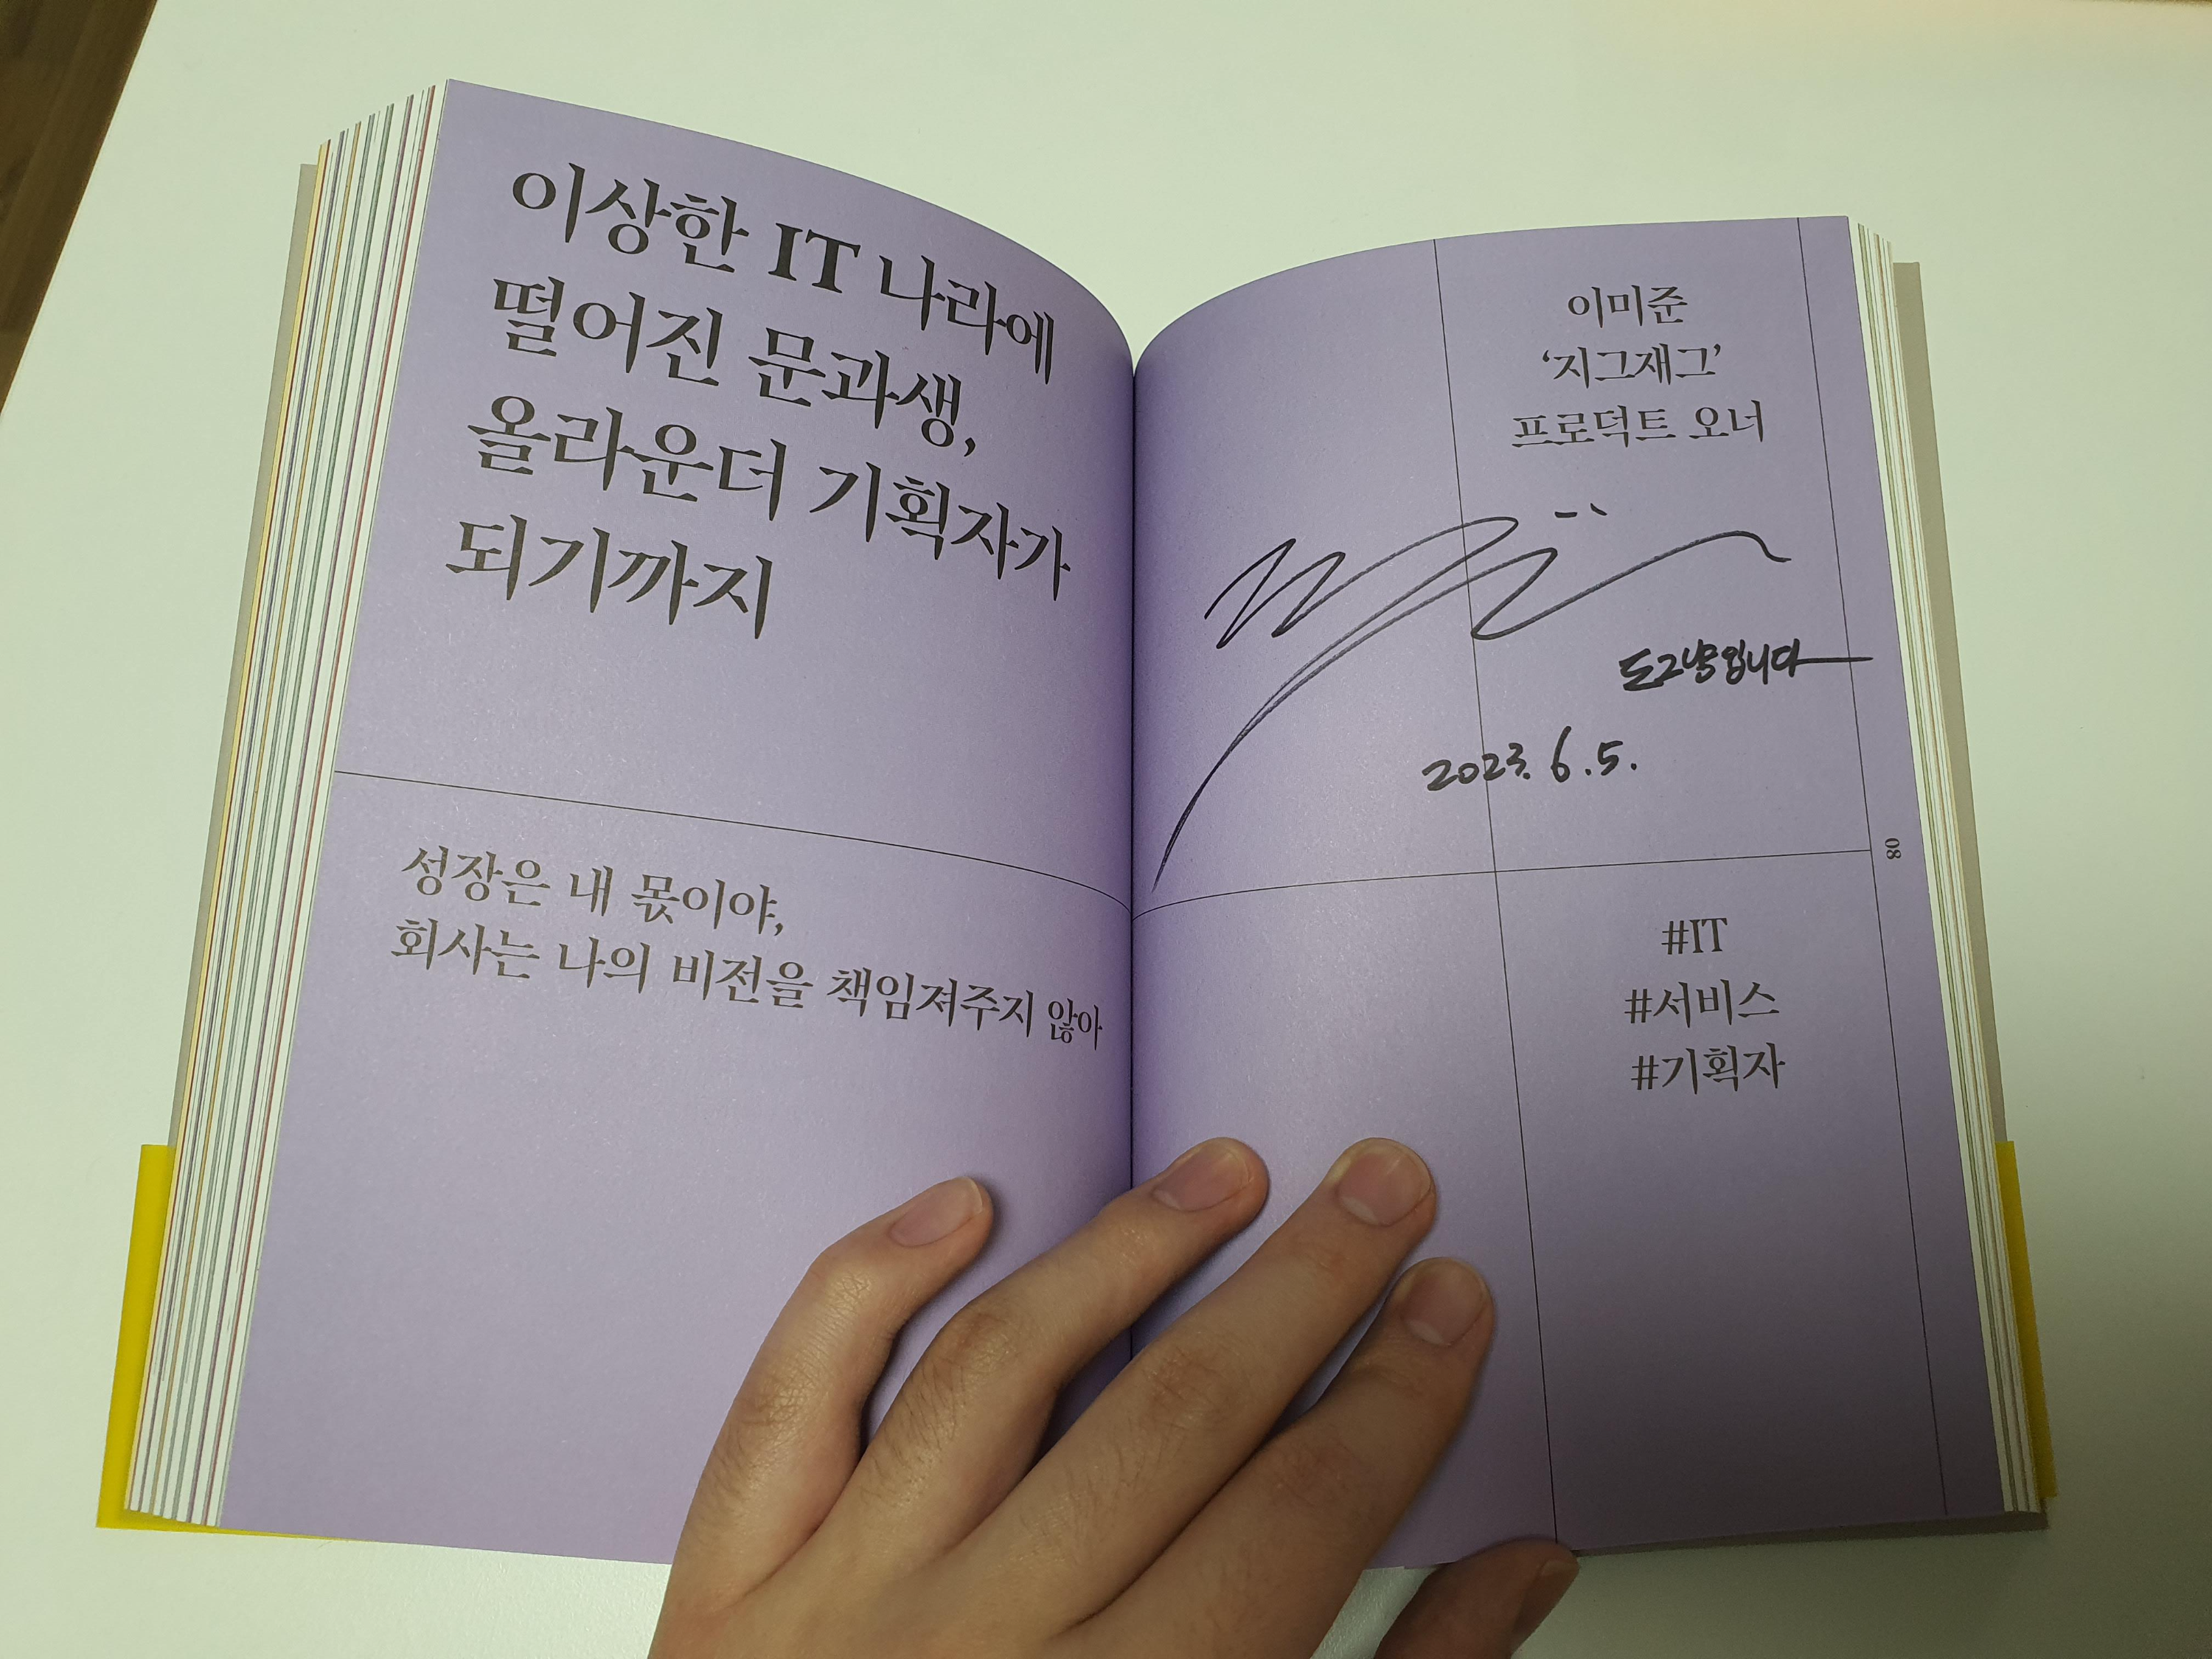 이상한 IT 나라에
떨어진 문과생,
올라운더 기획자가
되기까지
성장은 내 몫이야,
회사는 나의 비전을 책임져주지 않아
이미준
‘지그재그’
프로덕트 오너
도그냥입니다
2023. 6. 5.
08
#IT
#서비스
#기획자